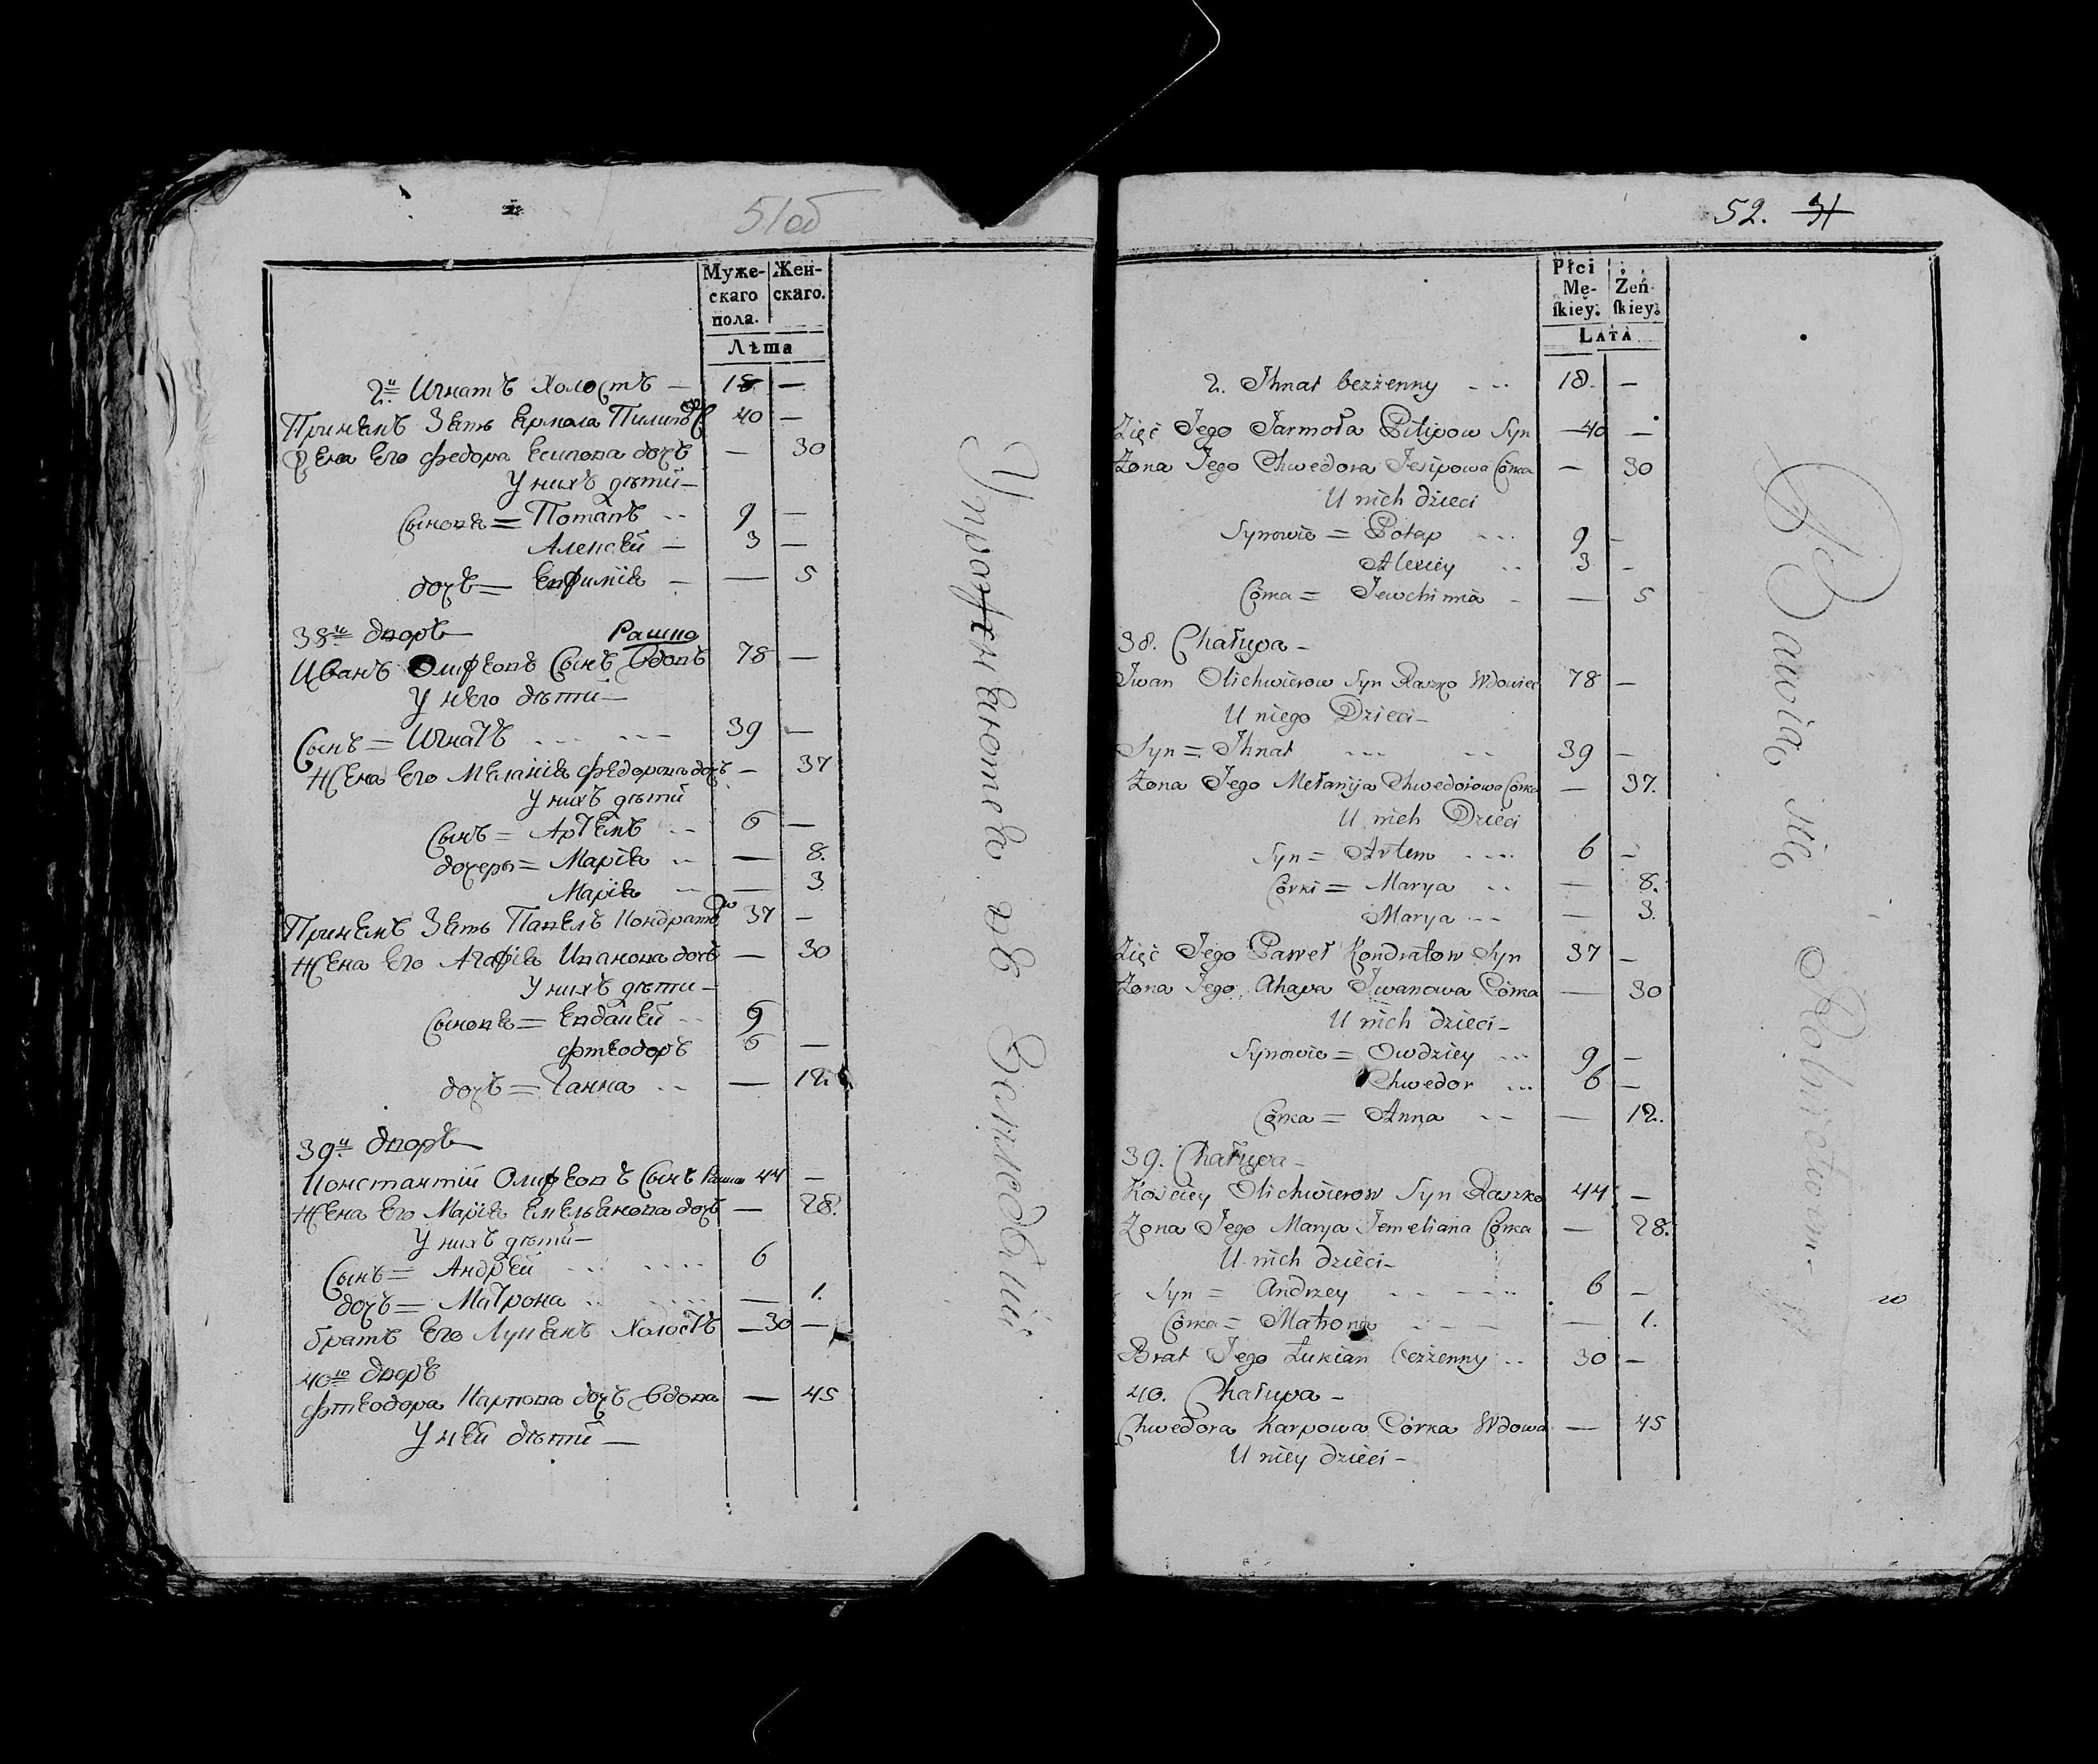 51об
Муже-
скаго
пола.
Жен-
скаго.
Лѣта
2й Игнатъ Холостъ — 18 —
Приемъ Зять Ермола Пилипов С 40 —
Жена Его Федора Есипова дочь — 30
У нихъ дѣти —
Сыновя = Потапъ .. 9 —
Алексей — 3 —
дочь = Евфимія — — 5
38й дворъ
Рашко
Иванъ Олиферовъ Сынъ Вдовъ 78 —
У него дѣти —
Сынъ = Игнатъ ... ... 39 —
Жена Его Меланія Федорова дочь — 37
У нихъ дѣти
Сынъ = Артемъ .. 6 —
дочери = Марія .. — 8.
Марія — — 3
Приемъ Зять Павелъ Кондратов 37 —
Жена Его Агафія Иванова дочь — 30
У нихъ дѣти —
Сыновя = Евдакей .. 9
Фтеодоръ 6 —
дочь = Ганна .. — 12.
39й дворъ
Константій Олиферовъ Сынъ Рашко 44 —
Жена Его Марія Емельянова дочь — 28.
У нихъ дѣти —
Сынъ = Андрей ... .... 6
дочь = Матрона .. .... — 1.
братъ Его Лукянъ Холостъ — 30 —
40й дворъ
Фтеодора Карпова дочь Вдова — 45
У ней дѣти —
52. 31
Płci
Mę-
ſkiey.
Żeń-
ſkiey.
Lata
2. Ihnat bezżenny ... 18. —
Zięć Jego Jarmoła Pilipow Syn — 40 —
Żona Jego Chwedora Jesipowa Córka — 30
U nich dzieci
Synowie = Potap ... 9 —
Alexiey .. 3 —
Córka = Jewchimia — — 5
38. Chałupa —
Iwan Olichwierow Syn Raszko Wdowiec 78 —
U niego Dzieci —
Syn = Ihnat ... .. 39 —
Żona Jego Mełanija Chwedorowa Córka — 37.
U nich Dzieci
Syn = Artem .... 6 —
Córki = Marya .. — 8.
Marya ... — 3.
Zięć Jego Paweł Kondratow Syn 37 —
Żona Jego Ahapa Iwanowa Córka — 30
U nich dzieci —
Synowie = Owdziey ... 9 —
Chwedor ... 6 —
Córka = Anna .. — 12.
39. Chałupa —
Kościey Olichwierow Syn Raszko 44 —
Żona Jego Marya Jemeliana Córka — 28.
U nich dzieci —
Syn = Andrzey .. .... 6 —
Córka = Matrona .. — — — 1.
Brat Jego Łukian bezżenny .. 30 —
40. Chałupa —
Chwedora Karpowa Córka Wdowa — 45
U niey dzieci —